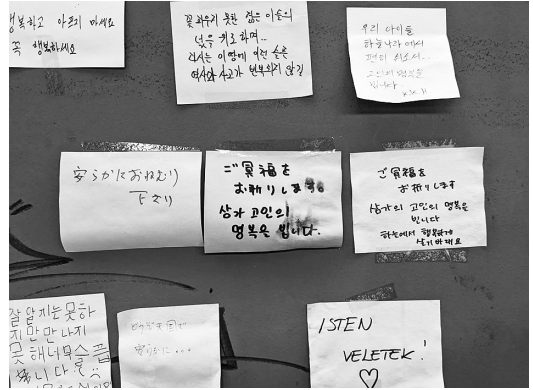 행복하고 아프지 마세요
꼭 행복하세요
꽃 피우지 못한 젊은 이들의
넋을 위로하며...
다시는 이 땅에 이런 슬픈
역사와 사고가 반복되지 않길
우리 아이들
하늘나라에서
편히 쉬소서..
고인의 명복을
빕니다
安らかにおねむり
下さい
ご冥福を
お祈りします
삼가 고인의
명복은 빕니다.
ご冥福を
お祈りします
삼가의 고인의 명복은
빕니다
하늘에서 행복하게
살기 바래요
잘 알지는 못하
지만 만나지
못해 너무 슬픕
니다
天国で
安らかに...
ISTEN
VELETEK!